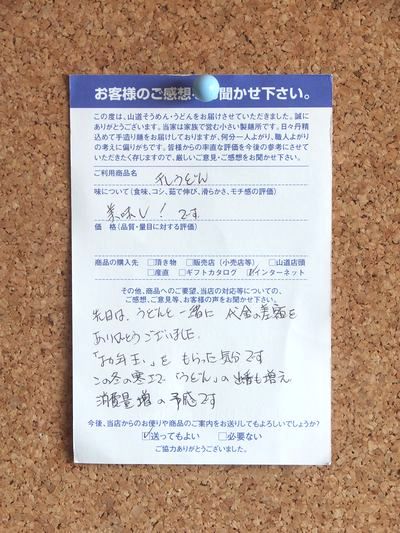 お客様のご感想お聞かせ下さい。
この度は、山道そうめん・うどんをお届けさせていただきました。誠に
ありがとうございます。当家は家族で営む小さい製麺所です。日々丹精
込めて手造り麺をお届けしておりますが、何分一人よがり、職人よがり
の考えに偏りがちです。皆様からの率直な評価を今後の参考にさせて
いただきたく存じますので、厳しいご意見・ご感想をお聞かせ下さい。
ご利用商品名
乱うどん
味について(食味、コシ、茹で伸び、滑らかさ、モチ感の評価)
美味し!です
価 格(品質・量目に対する評価)
商品の購入先 □頂き物 □販売店(小売店等) □山道店頭
□産直 □ギフトカタログ ☑インターネット
その他、商品へのご要望、当店の対応等についての、
ご感想、ご意見等、お客様の声をお聞かせ下さい。
先日は、うどんと一緒に 代金の差額を
ありがとうございました。
「お年玉、」を もらった気分です
この冬の寒さで「うどん」の出番も増え
消費量増の予感です
今後、当店からのお便りや商品のご案内をお送りしてもよろしいでしょうか?
☑送ってもよい □必要ない
ご協力ありがとうございました。